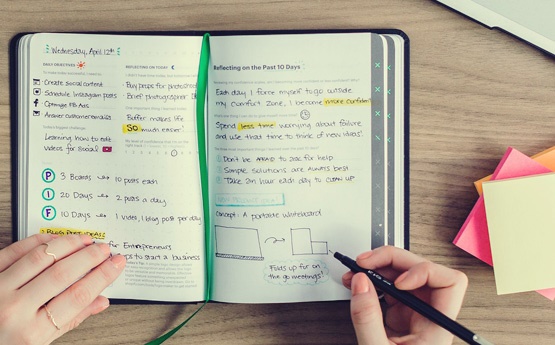 Wednesday, April 12th
DAILY OBJECTIVES
Create social content
Schedule Instagram posts
Optimize FB Ads
Answer customer emails
Learning how to edit
videos for Social
P 3 Boards → 10 posts each
I 20 Days → 2 posts a day
F 10 Days → 1 video, 1 blog post per day
BLOG POST IDEAS:
for Entrepreneurs
to start a business
REFLECTING ON TODAY
Buy props for photoshoot
Brief photographer
Buffer makes life
SO much easier!
Reflecting on the Past 10 Days
Each day I force myself to go outside
my comfort zone, I become more confident
Spend less time worrying about failure
and use that time to think of new ideas!
Don't be AFRAID to ask for help
Simple solutions are ALWAYS best
Take 2m hour each day to CLEAN UP
Concept: A portable whiteboard
Folds up for on
the go meetings!